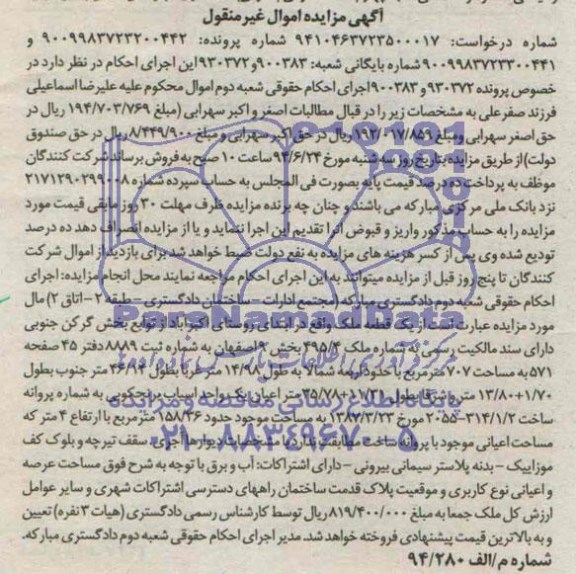 آگهی مزایده اموال غیرمنقول
شماره درخواست: ۹۴۱۰۴۶۳۷۲۳۵۰۰۰۱۷ شماره پرونده: ۹۰۰۹۹۸۳۷۲۳۲۰۰۴۴۲ و
۹۰۰۹۹۸۳۷۲۳۳۰۰۴۴۱ شماره بایگانی شعبه: ۹۰۰۳۸۳ و ۹۳۰۳۷۲ این اجرای احکام در نظر دارد در
خصوص پرونده ۹۳۰۳۷۲ و ۹۰۰۳۸۳ اجرای احکام حقوقی شعبه دوم اموال محکوم علیه علیرضا اسماعیلی
فرزند صفرعلی به مشخصات زیر را در قبال مطالبات اصغر و اکبر سهرابی (مبلغ ۱۹۴/۷۰۳/۷۶۹ ریال در
حق اصغر سهرابی ومبلغ ریال در حق اکبر سهرابی و مبلغ ۸/۴۴۹/۹۰۰ ریال در حق صندوق
دولت) از طریق مزایده بتاریخ روز سه شنبه مورخ ۹۴/۶/۲۴ ساعت ۱۰ صبح به فروش برساند شرکت کنندگان
موظف به پرداخت ده درصد قیمت پایه بصورت فی المجلس به حساب سپرده شماره ۲۱۷۱۲۹۰۲۹۹۰۰۸
نزد بانک ملی مرکزی مبارکه می باشند و چنان چه برنده مزایده ظرف مهلت ۳۰ روز مابقی قیمت مورد
مزایده را به حساب مذکور واریز و قبوض آنرا تقدیم این اجرا ننماید و یا از مزایده انصراف دهد ده درصد
تودیع شده وی پس از کسر هزینه های مزایده به نفع دولت ضبط خواهد شد برای بازدید از اموال شرکت
کنندگان تا پنج روز قبل از مزایده میتوانند به این اجرای احکام مراجعه نمایند محل انجام مزایده: اجرای
احکام حقوقی شعبه دوم دادگستری مبارکه (مجتمع ادارات – ساختمان دادگستری – طبقه ۲ – اتاق ۲) مال
مورد مزایده عبارت است از یک قطعه ملک واقع در ابتدای روستای اکبرآباد از توابع بخش گرکن جنوبی
دارای سند مالکیت رسمی به شماره ملک ۴۹۵/۴ بخش ۹ اصفهان به شماره ثبت ۸۸۸۹ دفتر ۴۵ صفحه
۵۷۱ به مساحت ۷۰۷ متر مربع با حدود اربعه شمالا به طول ۱۴/۹۸ متر غربا بطول ۴۶/۹۴ متر جنوب بطول
۱۳/۸۰+۱/۷۰ متر شرقا بطول متر اعیان یک واحد مرغداری به شماره پروانه
ساخت ۲۰۵۵-۳۱۴/۱/۲ مورخ ۱۳۸۲/۳/۲۳ به مساحت موجود حدود ۱۵۸/۳۶ متر مربع با ارتفاع ۴ متر که
مساحت اعیانی موجود با پروانه ساخت مطابقت ندارد با مشخصات دیوارها آجری سقف تیرچه و بلوک کف
موزاییک – بدنه پلاستر سیمانی بیرونی – دارای اشتراکات: آب و برق با توجه به شرح فوق مساحت عرصه
و اعیانی نوع کاربری و موقعیت پلاک قدمت ساختمان راههای دسترسی اشتراکات شهری و سایر عوامل
ارزش کل ملک جمعا به مبلغ ۸۱۹/۴۰۰/۰۰۰ ریال توسط کارشناس رسمی دادگستری (هیات ۳ نفره) تعیین
و به بالاترین قیمت پیشنهادی فروخته خواهد شد. مدیر اجرای احکام حقوقی شعبه دوم دادگستری مبارکه.
شماره م/الف ۹۴/۲۸۰
ParsNamadData
پایگاه اطلاع رسانی مناقصه و مزایده
۰۲۱-۸۸۳۴۹۶۷۰-۵